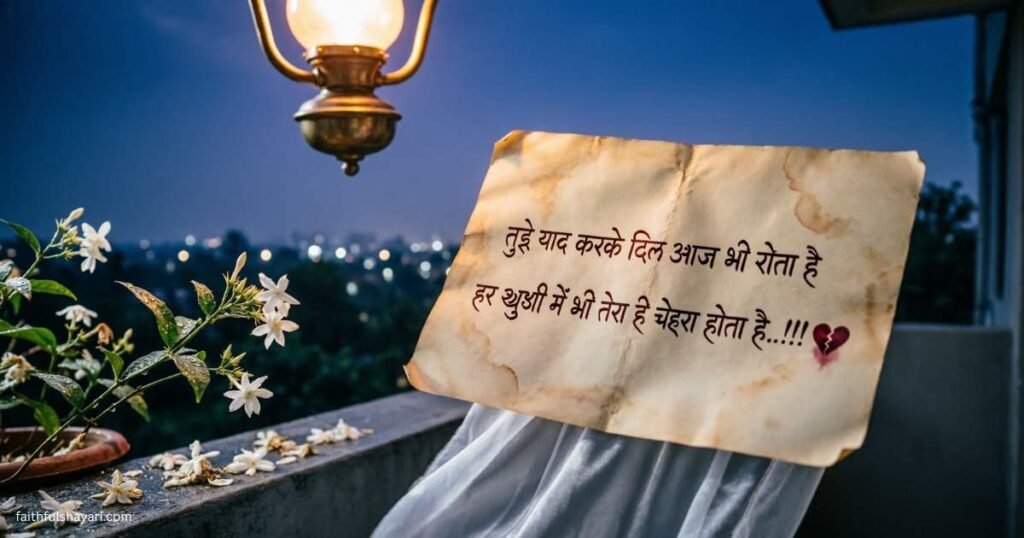 तुझे याद करके दिल आज भी रोता है
हर खुशी में भी तेरा ही चेहरा होता है..!!!
faithfulshayari.com